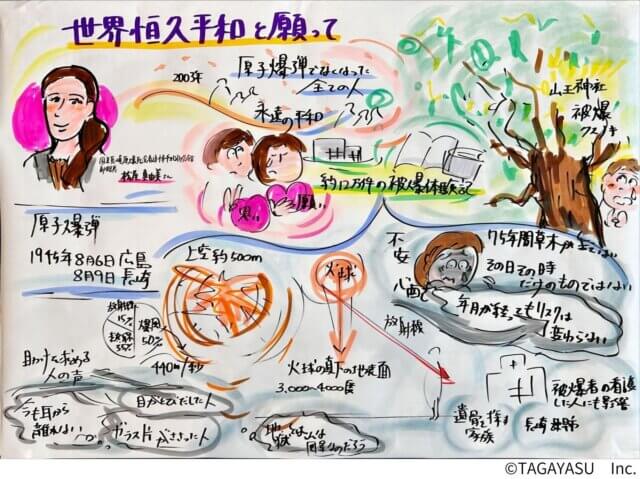 世界恒久平和を願って
2003年
原子爆弾でなくなった
全ての人
永遠の平和
山王神社
被爆
クスノキ
思い
願い
約12万件の被爆体験記
原子爆弾
1945年8月6日広島
8月9日長崎
上空約500m
火球
不安
75年間草木が生えない
その日その時
だけのものではない
年月が経ってもリスクは
変わらない
放射線
15%
35%
爆風
50%
440m/秒
放射線
火球の真下の地表面
3,000~4000度
助けを求める
人の声
今も耳から
離れない
目がとびだした人
ガラス片がささった人
地獄
被爆者の看護
した人にも影響
遺骨を探す
家族
©TAGAYASU Inc.